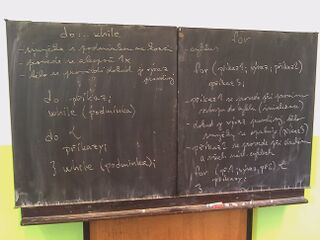 do...while
- smyčka s podmínkou na konci
- provede se alespoň 1x
- tělo se provádí dokud je výraz
pravdivý
do příkaz;
while (podmínka)
do {
příkazy;
} while (podmínka);
for
- cyklus
for (příkaz1; výraz; příkaz2)
příkaz3;
- příkaz1 se provede při prvním
vstupu do cyklu
- dokud je výraz pravdivý, tělo
smyčky se opakuje (příkaz3)
- příkaz2 se provede při
a všech
for (př1; výraz; př2) {
příkazy;
}